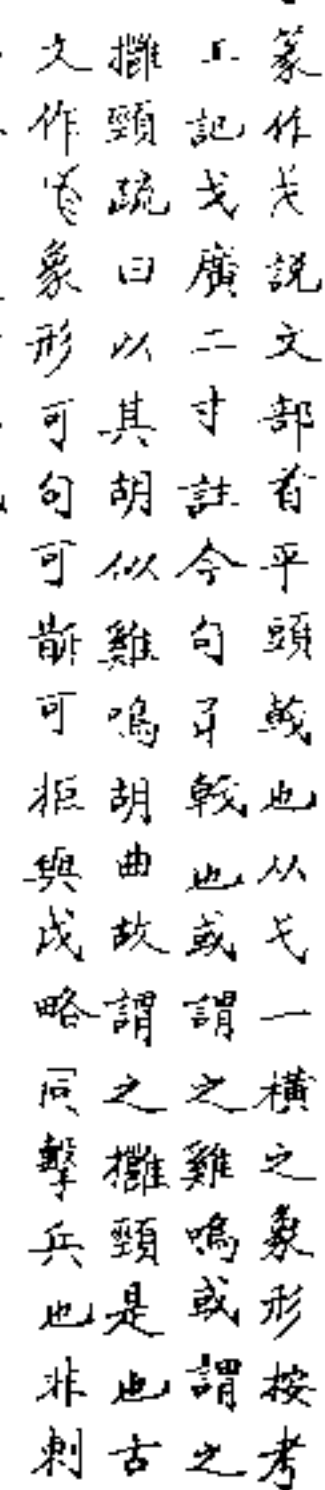 篆作戈説文部首平頭戟也从弋一横之象形按考
工記戈廣二寸註今句孑戟也或謂之雞鳴或謂之
擁頸疏曰以其胡似雞鳴胡曲故謂之擁頸是也古
文作象形可句可斮可拒與戊略同擊兵也非刺